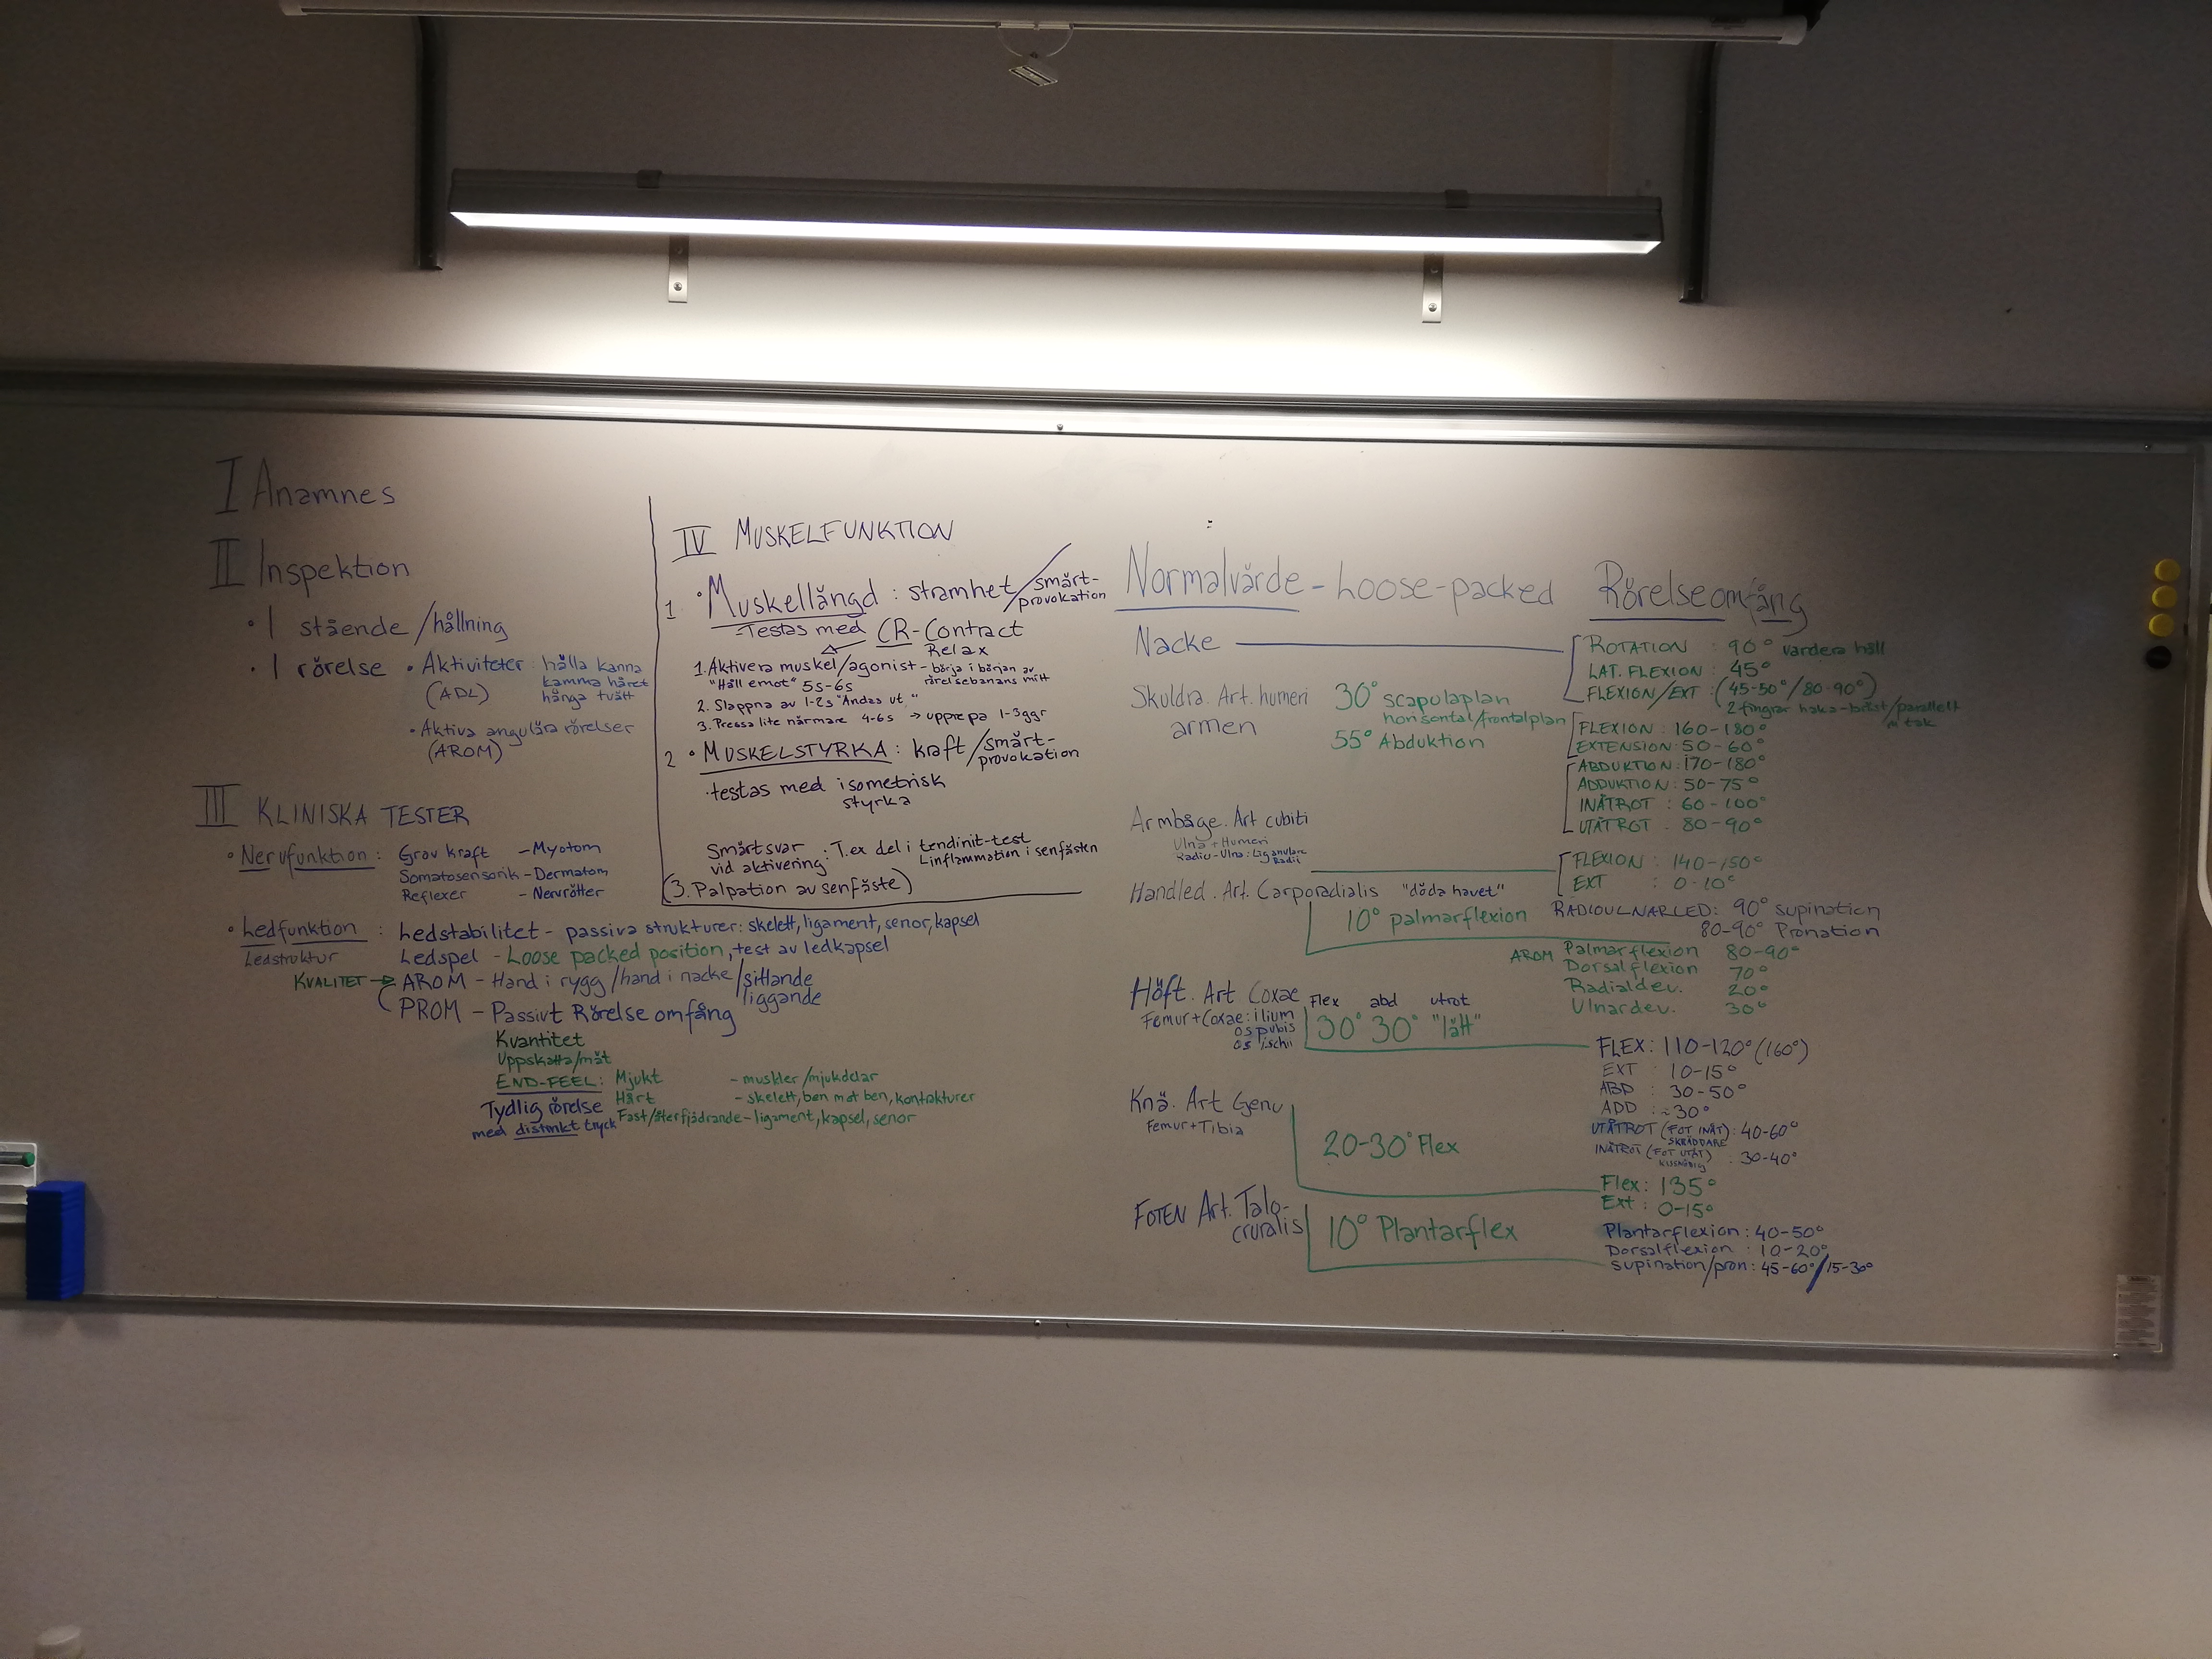 I Anamnes
II Inspektion
• I stående/hållning
• I rörelse • Aktiviteter: hålla kanna
(ADL) kamma håret
hänga tvätt
• Aktiva angulära rörelser
(AROM)
III KLINISKA TESTER
• Nervfunktion: Grov kraft - Myotom
Somatosensorik - Dermatom
Reflexer - Nervrötter
• Ledfunktion : Ledstabilitet - passiva strukturer: skelett, ligament, senor, kapsel
Ledstruktur Ledspel - Loose packed position, test av ledkapsel
KVALITET → AROM - Hand i rygg/hand i nacke/sittande
liggande
PROM - Passivt Rörelseomfång
Kvantitet
Uppskatta/mät
END-FEEL: Mjukt - muskler/mjukdelar
Hårt - skelett, ben mot ben, kontrakturer
Tydlig rörelse Fast/återfjädrande - ligament, kapsel, senor
med distinkt tryck
IV MUSKELFUNKTION
1 • Muskellängd: stramhet/smärt-
provokation
- Testas med CR - Contract
Relax
1. Aktivera muskel/agonist - börja i början av
"Håll emot" 5s-6s rörelsebanans mitt
2. Slappna av 1-2s "Andas ut"
3. Pressa lite närmare 4-6s → upprepa 1-3ggr
2 • MUSKELSTYRKA: kraft/smärt-
provokation
• testas med isometrisk
styrka
Smärtsvar : T.ex del i tendinit-test
vid aktivering: Linflammation i senfästen
(3. Palpation av senfäste)
Normalvärde - Loose-packed Rörelseomfång
Nacke
ROTATION : 90° vardera håll
LAT. FLEXION : 45°
FLEXION/EXT : (45-50°/80-90°)
2 fingrar haka-bröst/parallellt
m tak
Skuldra. Art. humeri 30° scapulaplan
armen horisontal/frontalplan
55° Abduktion
FLEXION: 160-180°
EXTENSION: 50-60°
ABDUKTION: 170-180°
ADDUKTION: 50-75°
INÅTROT : 60-100°
UTÅTROT : 80-90°
Armbåge. Art cubiti
Ulna + Humeri
Radio-Ulna: Lig anulare
Radii
FLEXION : 140-150°
EXT : 0-10°
RADIOULNARLED: 90° supination
80-90° Pronation
Handled. Art. Carporadialis "döda havet"
10° palmarflexion
AROM Palmarflexion 80-90°
Dorsalflexion 70°
Radialdev. 20°
Ulnardev. 30°
Höft. Art Coxae Flex abd utrot
Femur + Coxae: ilium 30° 30° "lätt"
os pubis
os ischii
FLEX: 110-120° (160°)
EXT : 10-15°
ABD : 30-50°
ADD : ≈30°
UTÅTROT (FOT INÅT): 40-60°
SKRÄDDARE
INÅTROT (FOT UTÅT) : 30-40°
Knä. Art Genu
Femur + Tibia
20-30° Flex
Flex: 135°
Ext : 0-15°
FOTEN Art. Talo-
cruralis
10° Plantarflex
Plantarflexion: 40-50°
Dorsalflexion : 10-20°
supination/pron: 45-60°/15-30°